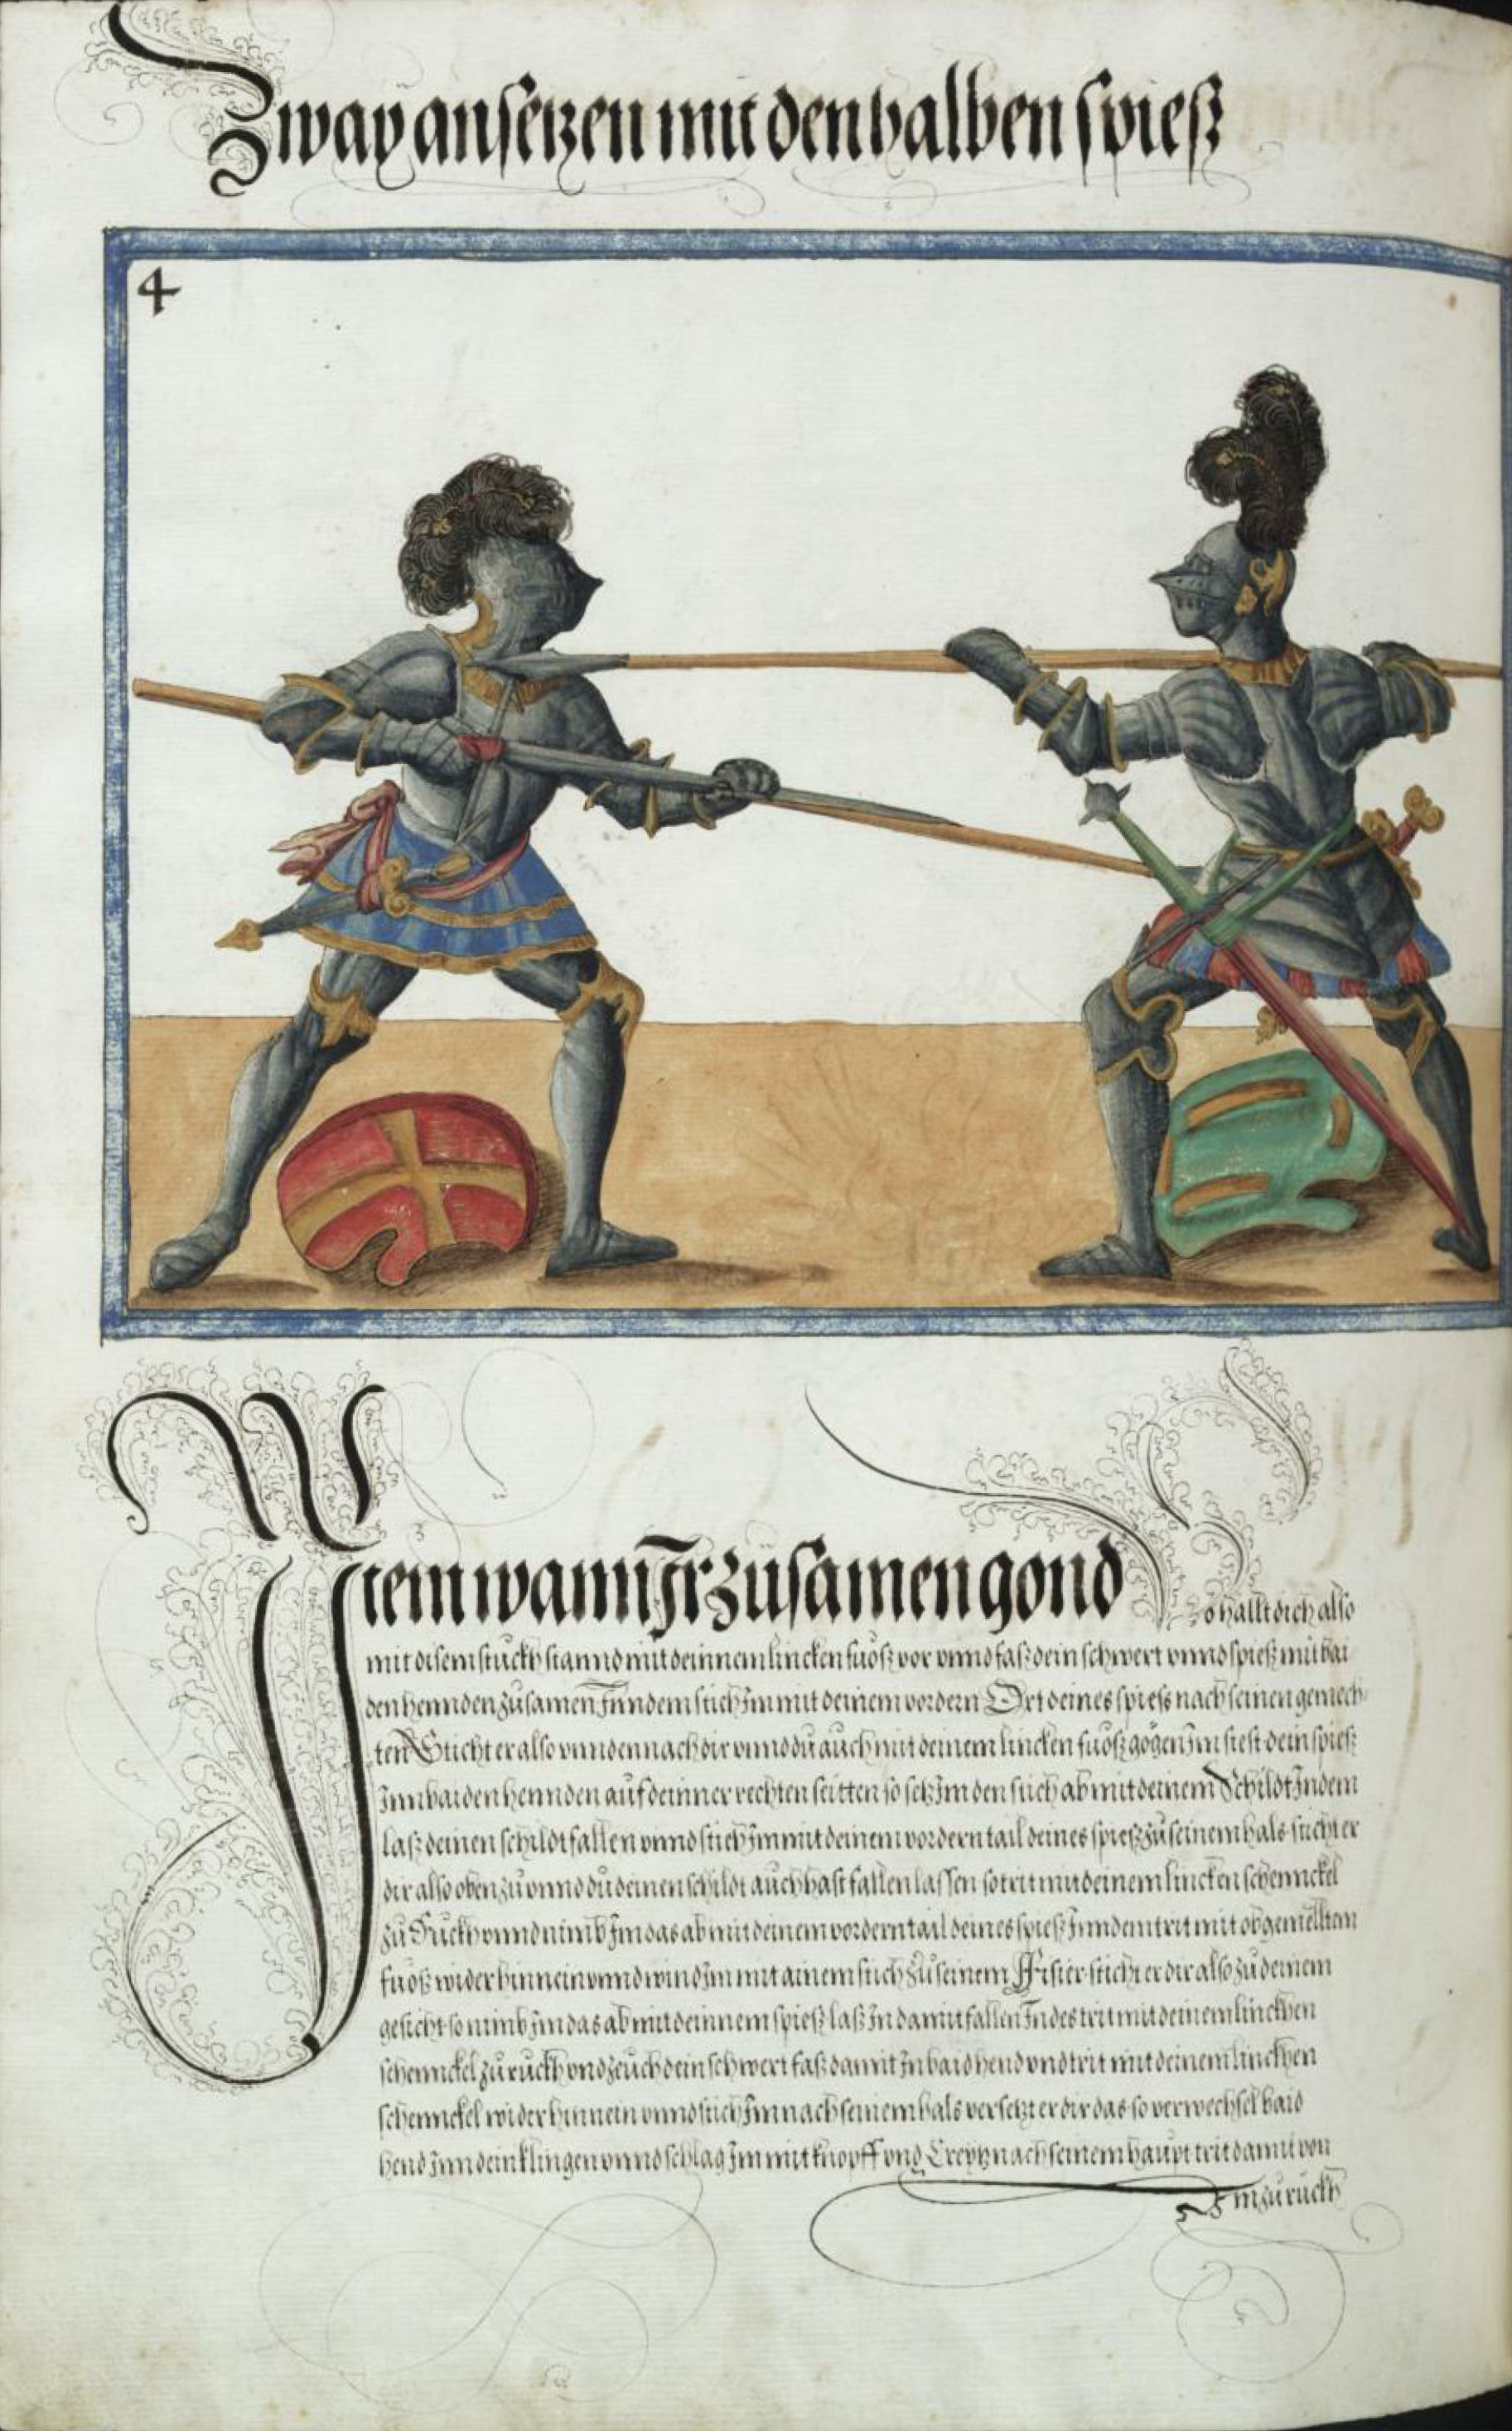 Zway ansetzen mit den halben spiesz
4
Item wann Ir zusamen gond So hallt dich also
mit disem stuckh stannd mit deinnem lincken fuosz vor unnd fasz dein schwert unnd spiesz mit bai
den hennden zusamen Inn dem stich Im mit deinem vordern Ort deines spiess nach seinen gemech
ten Sticht er also unnden nach dir unnd du auch mit deinem lincken fuosz gögen Im stest dein spiesz
Inn baiden hennden auf deinner rechten seitten so setz Im den stich ab mit deinem Schildt Indem
lasz deinen schildt fallen unnd stich Im mit deinem vordern tail deines spiesz zu seinem hals sticht er
dir also oben zu unnd du deinen schildt auch hast fallen lassen so trit mit deinem lincken schennckel
zu Ruckh unnd nimb Im das ab mit deinem vordern tail deines spiesz Inn dem trit mit obgemelltem
fuosz wider hinnein unnd wind Im mit ainem stich zu seinem Fisier sticht er dir also zu deinem
gesicht so nimb Im das ab mit deinnem spiesz lasz In damit fallen Indes trit mit deinem linckhen
schennckel zu ruckh und zeuch dein schwert fasz damit In baid hend und trit mit deinem linckhen
schennckel wider hinnein unnd stich Im nach seinem hals versetzt er dir das so verwechsel baid
hend Inn dein klingen unnd schlag Im mit knopff und Creytz nach seinem haupt trit damit von
Im zu ruckh